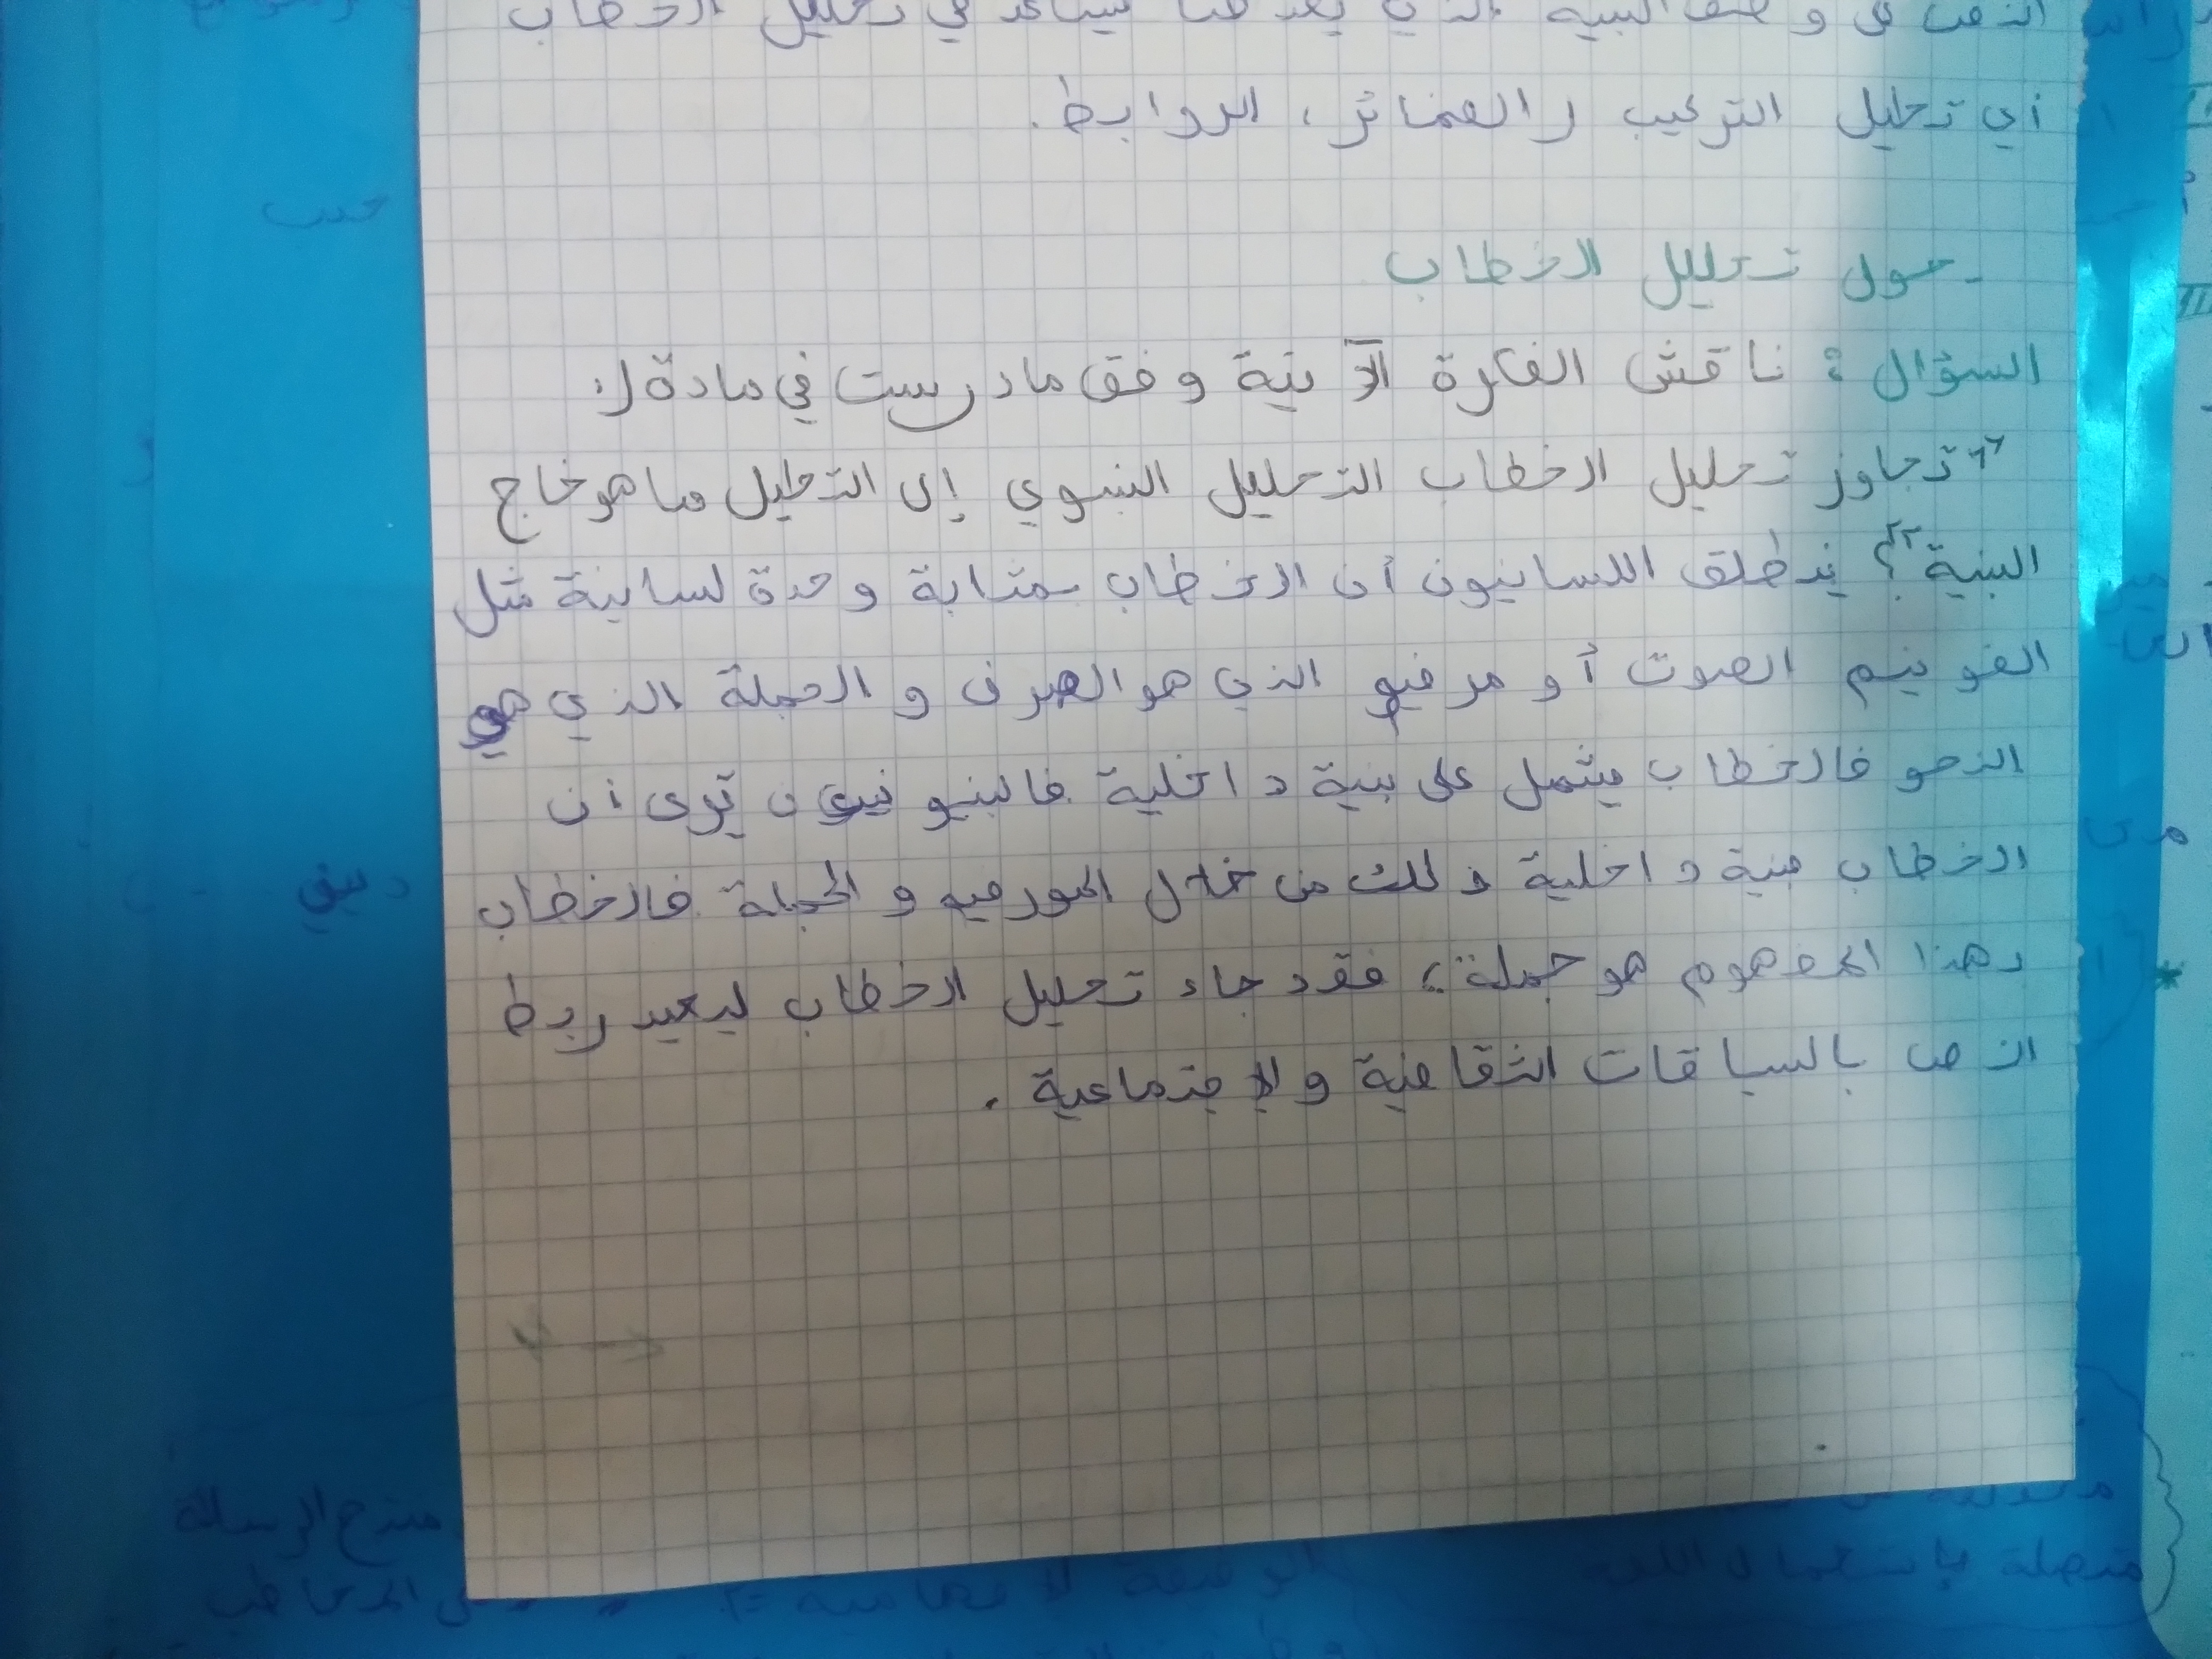 النص في وصف البنية الذي يعد هنا يساعد في تحليل الخطاب
أي تحليل التركيب ( الضمائر ، الروابط .
- حول تحليل الخطاب
السؤال : ناقش الفكرة الآتية وفق ما درست في مادة ل :
"تجاوز تحليل الخطاب التحليل البنيوي إلى التحليل ما هو خاج
البنية"؟ ينطلق اللسانيون أن الخطاب بمثابة وحدة لسانية مثل
الفونيم الصوت أو مرفيم الذي هو الصرف و الجملة الذي هو
النحو فالخطاب يشمل على بنية داخلية فالبنيونيون ترى أن
الخطاب بنية داخلية ذلك من خلال المورفيم و الجملة فالخطاب
بهذا المفهوم هو جملة ؛ فقد جاء تحليل الخطاب ليعيد ربط
النص بالسياقات الثقافية والإجتماعية .
منتج الرسالة
متصلة باستعمال اللغة